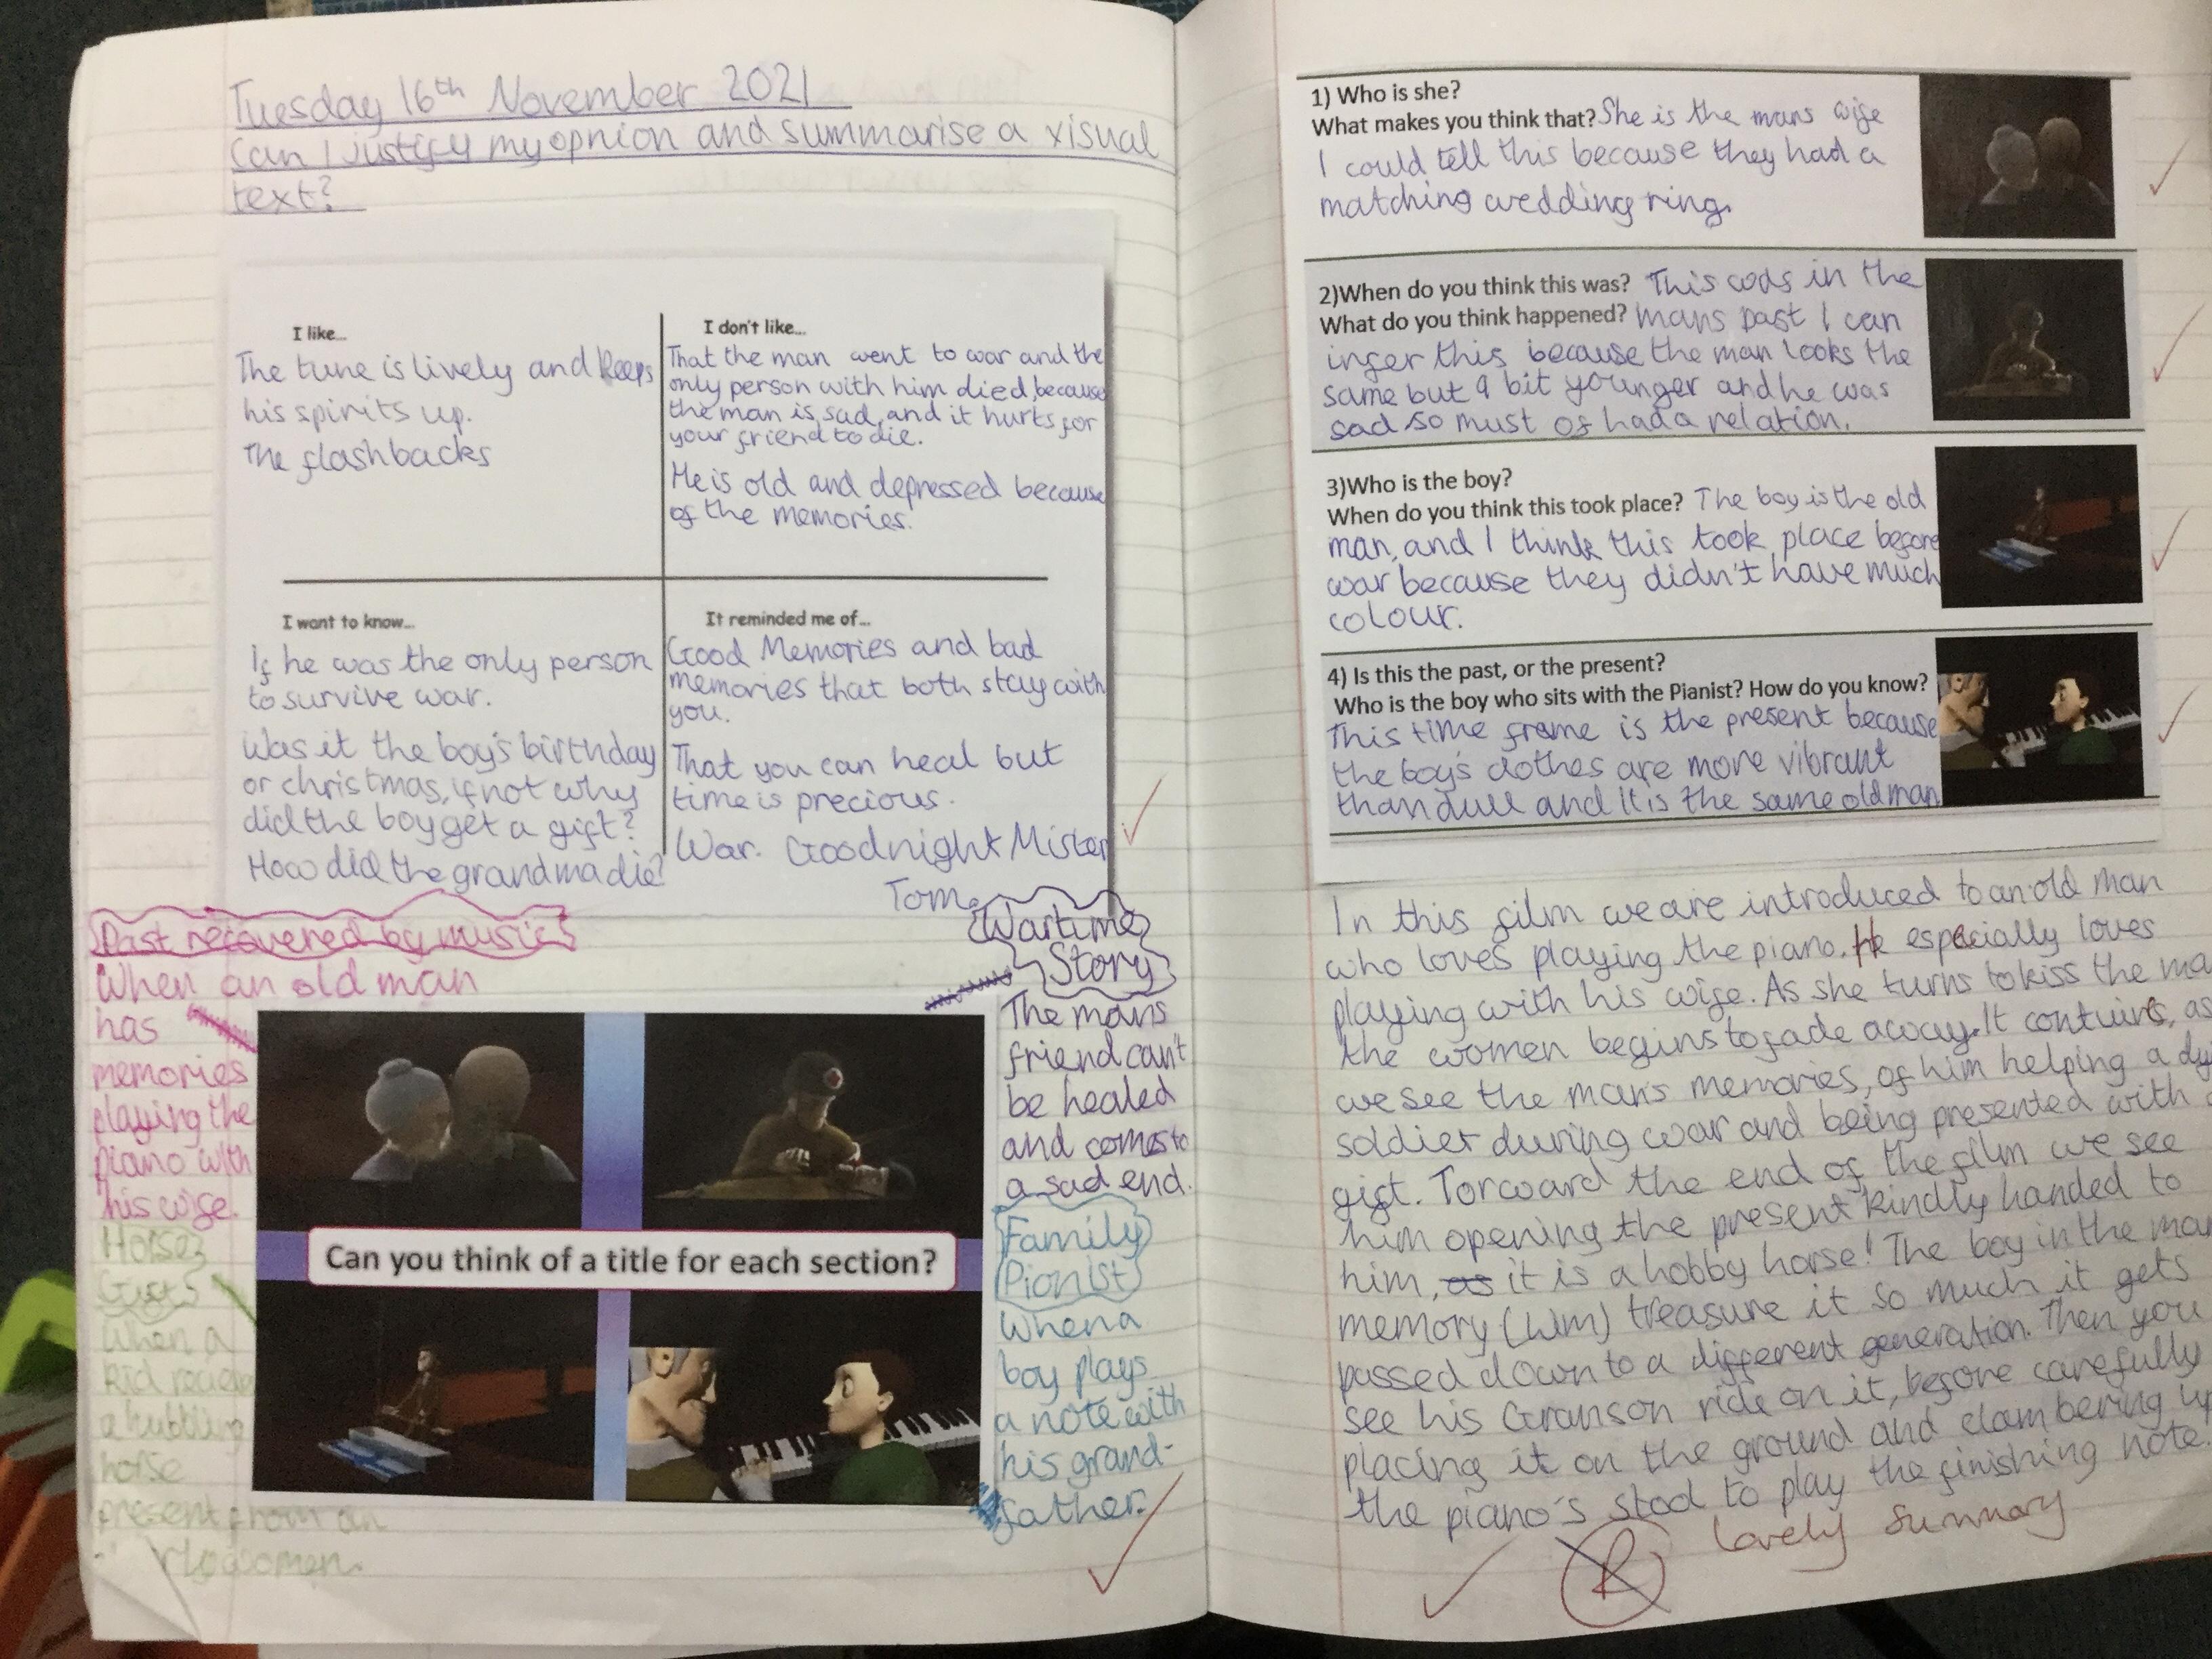 Tuesday 16th November 2021
Can I justify my opnion and summarise a visual
text?
I like...
The tune is lively and keeps
his spirits up.
The flashbacks
I don't like...
That the man went to war and the
only person with him died, because
the man is sad, and it hurts for
your friend to die.
He is old and depressed because
of the memories.
I want to know...
If he was the only person
to survive war.
Was it the boy's birthday
or christmas, if not why
did the boy get a gift?
How did the grandma die?
It reminded me of...
Good Memories and bad
memories that both stay with
you.
That you can heal but
time is precious.
War. Goodnight Mister
Tom.
Past recovered by music
When an old man
has
memories
playing the
piano with
his wife.
Horse
Gift
When a
kid
a
horse
present from an
Wartime
Story
The mans
friend can't
be healed
and comes to
a sad end.
Family
Pionist
When a
boy plays
a note with
his grand-
father.
Can you think of a title for each section?
1) Who is she?
What makes you think that? She is the mans wife
I could tell this because they had a
matching wedding ring.
2)When do you think this was? This was in the
What do you think happened? mans past I can
infer this because the man looks the
same but a bit younger and he was
sad so must of had a relation.
3)Who is the boy?
When do you think this took place? The boy is the old
man, and I think this took place before
war because they didn't have much
colour.
4) Is this the past, or the present?
Who is the boy who sits with the Pianist? How do you know?
This time frame is the present because
the boy's clothes are more vibrant
than dull and it is the same old man
In this film we are introduced to an old man
who loves playing the piano. He especially loves
playing with his wife. As she turns to kiss the
the women begins to fade away. It , as
we see the man's memories, of him helping a
soldier during war and being presented with
gift. Torward the end of the film we see
him opening the present kindly handed to
him, as it is a hobby horse! The boy in the
memory (Him) treasure it so much it gets
passed down to a different generation. Then you
see his Granson ride on it, before carefully
placing it on the ground and clambering up
the piano's stool to play the finishing note.
Lovely Summary